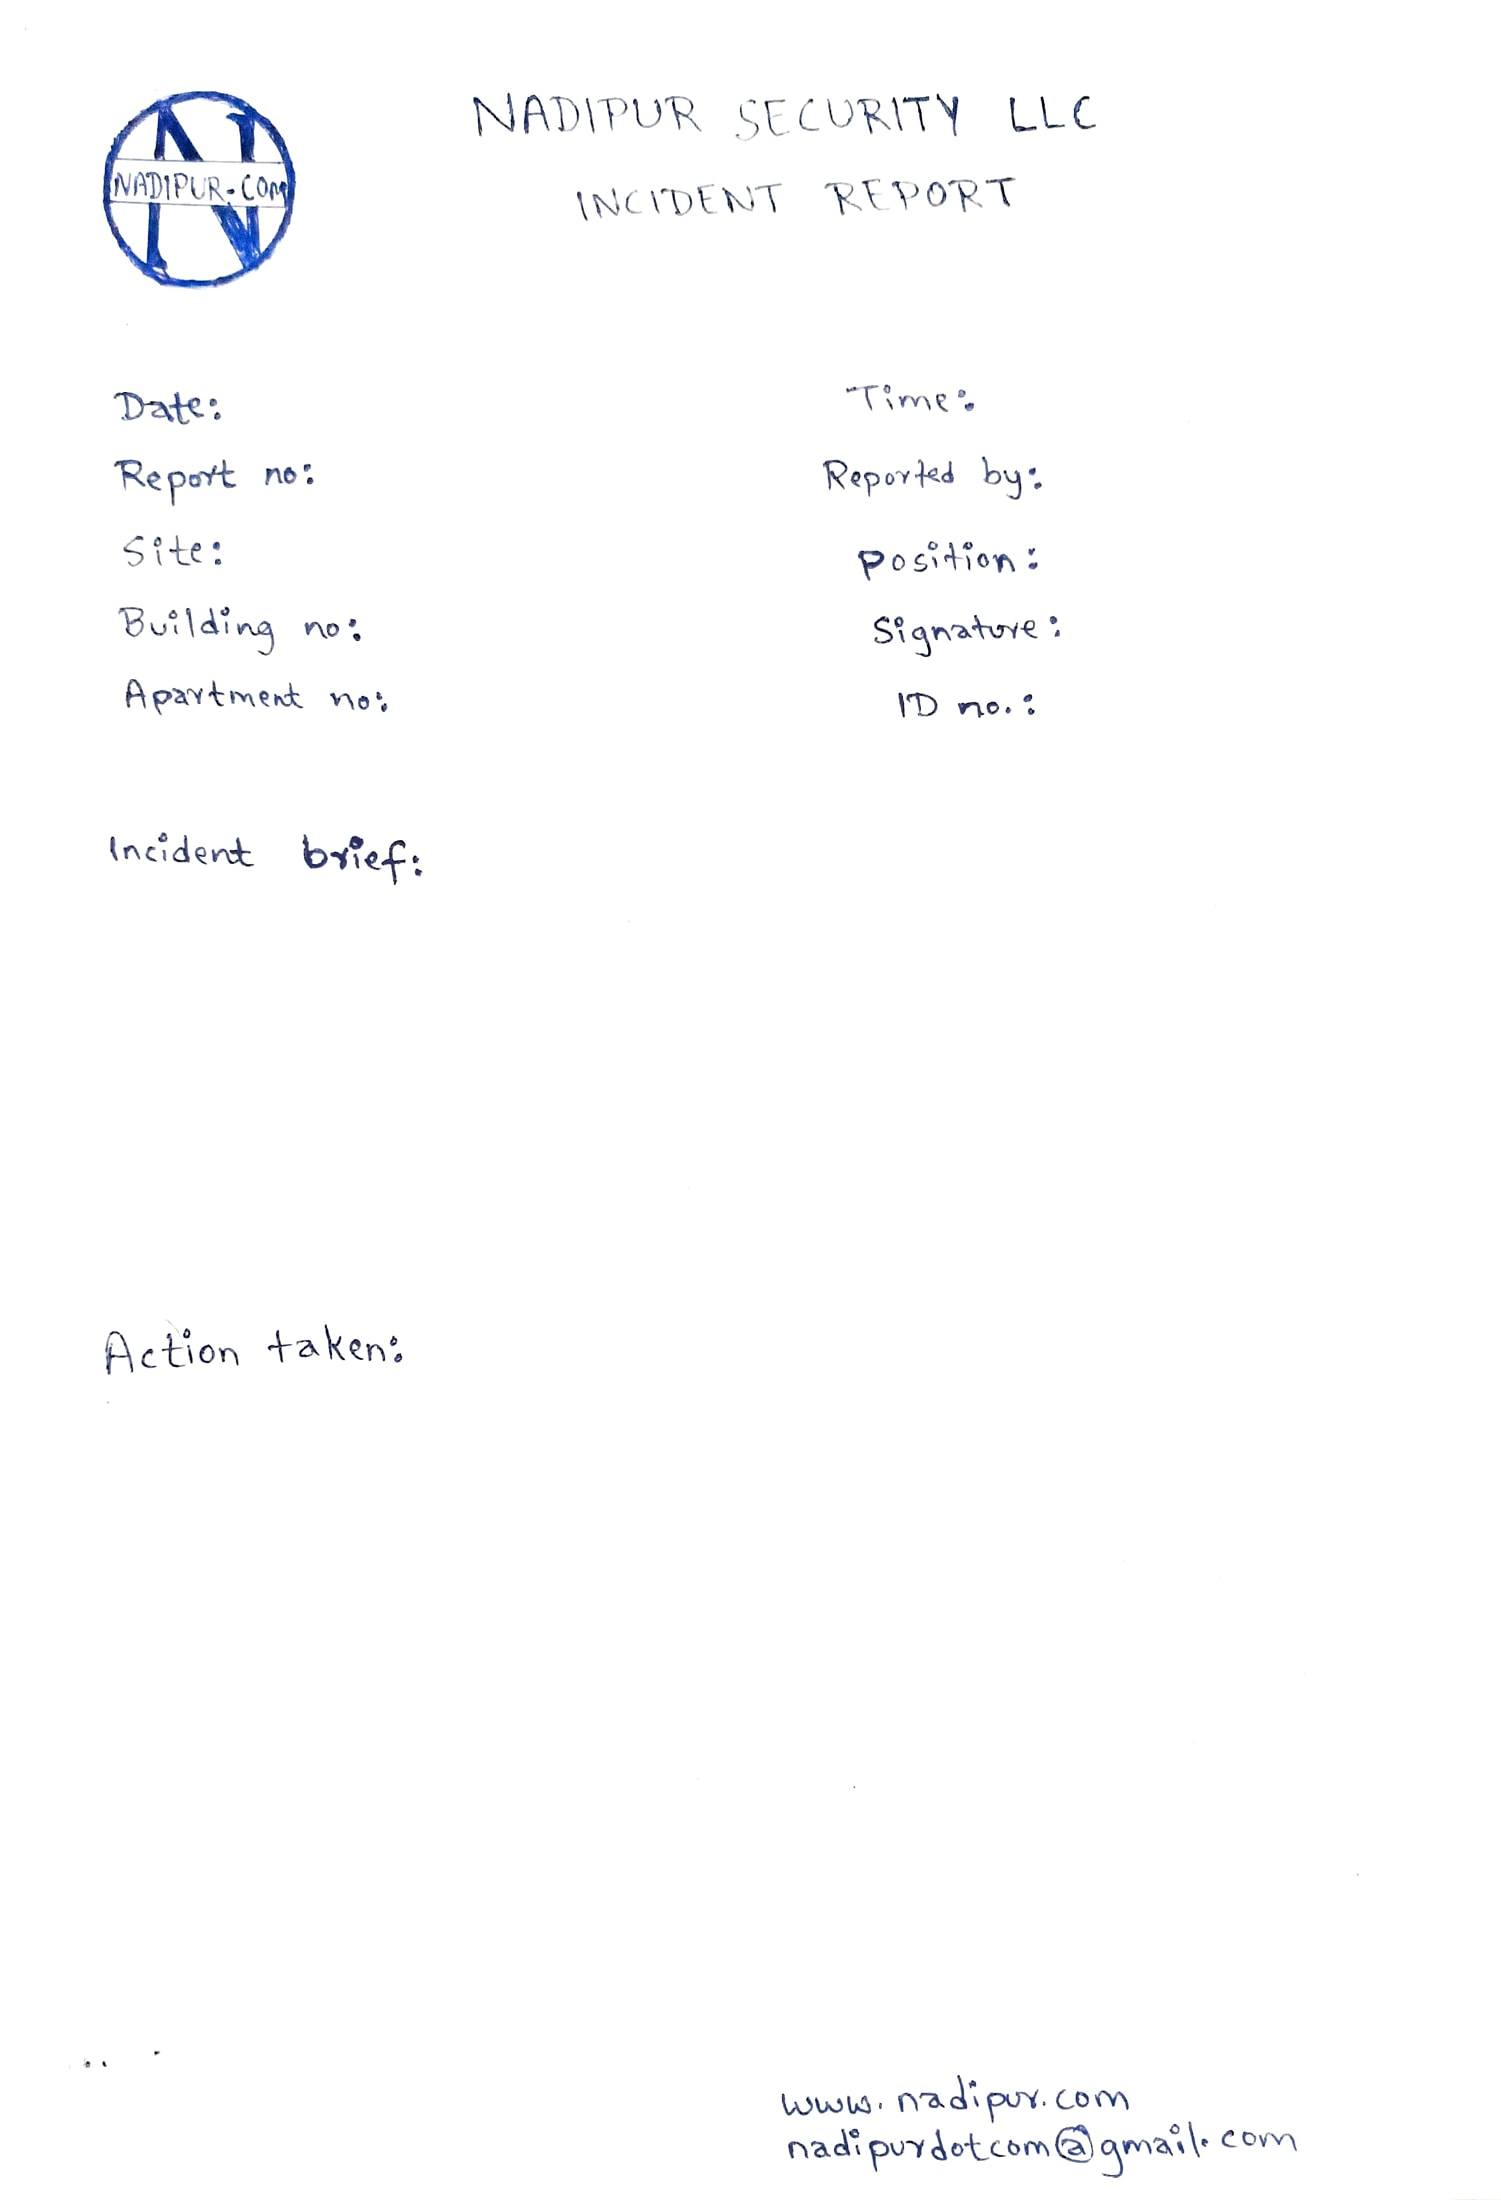 NADIPUR SECURITY LLC
INCIDENT REPORT
NADIPUR.COM
Date:
Time:
Report no:
Reported by:
Site:
Position:
Building no:
Signature:
Apartment no:
ID no.:
Incident brief:
Action taken:
www.nadipur.com
nadipurdotcom@gmail.com